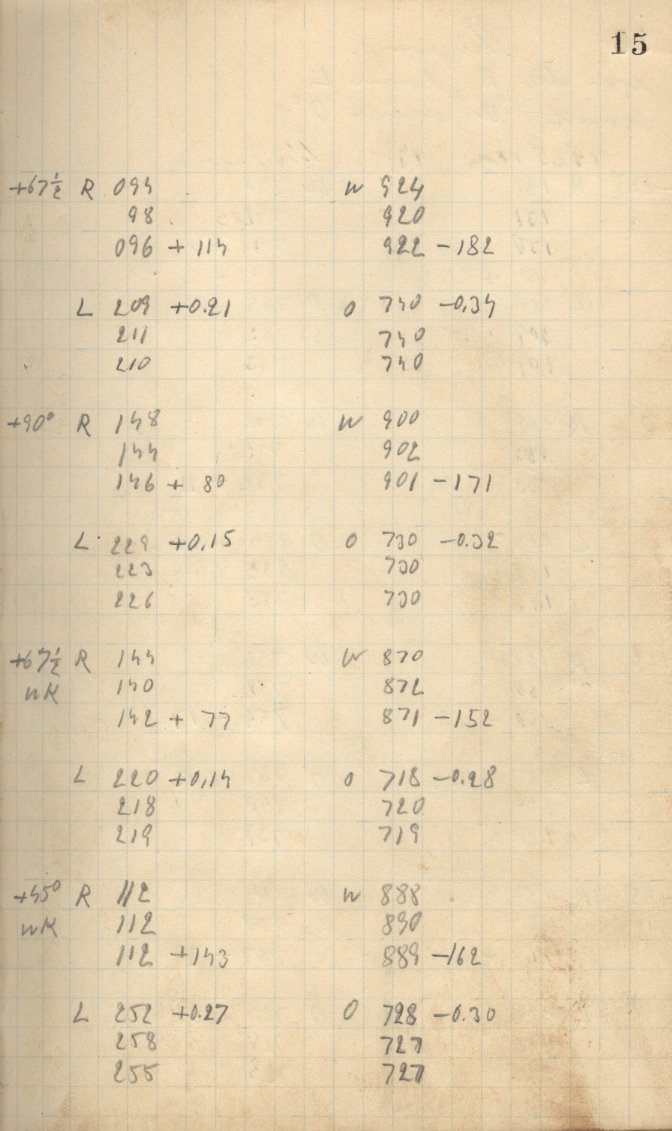 15
+67½ R 094 W 924
98 920
096 + 114 922 - 182
L 209 +0.21 O 740 -0.34
211 740
210 740
+90° R 148 W 900
144 902
146 + 80 901 - 171
L 229 +0.15 O 730 -0.32
223 730
226 730
+67½ R 144 W 870
wK 140 872
142 + 77 871 - 152
L 220 +0.14 O 718 -0.28
218 720
219 719
+45° R 112 W 888
wK 112 890
112 + 143 889 -162
L 252 +0.27 O 728 -0.30
258 727
255 727